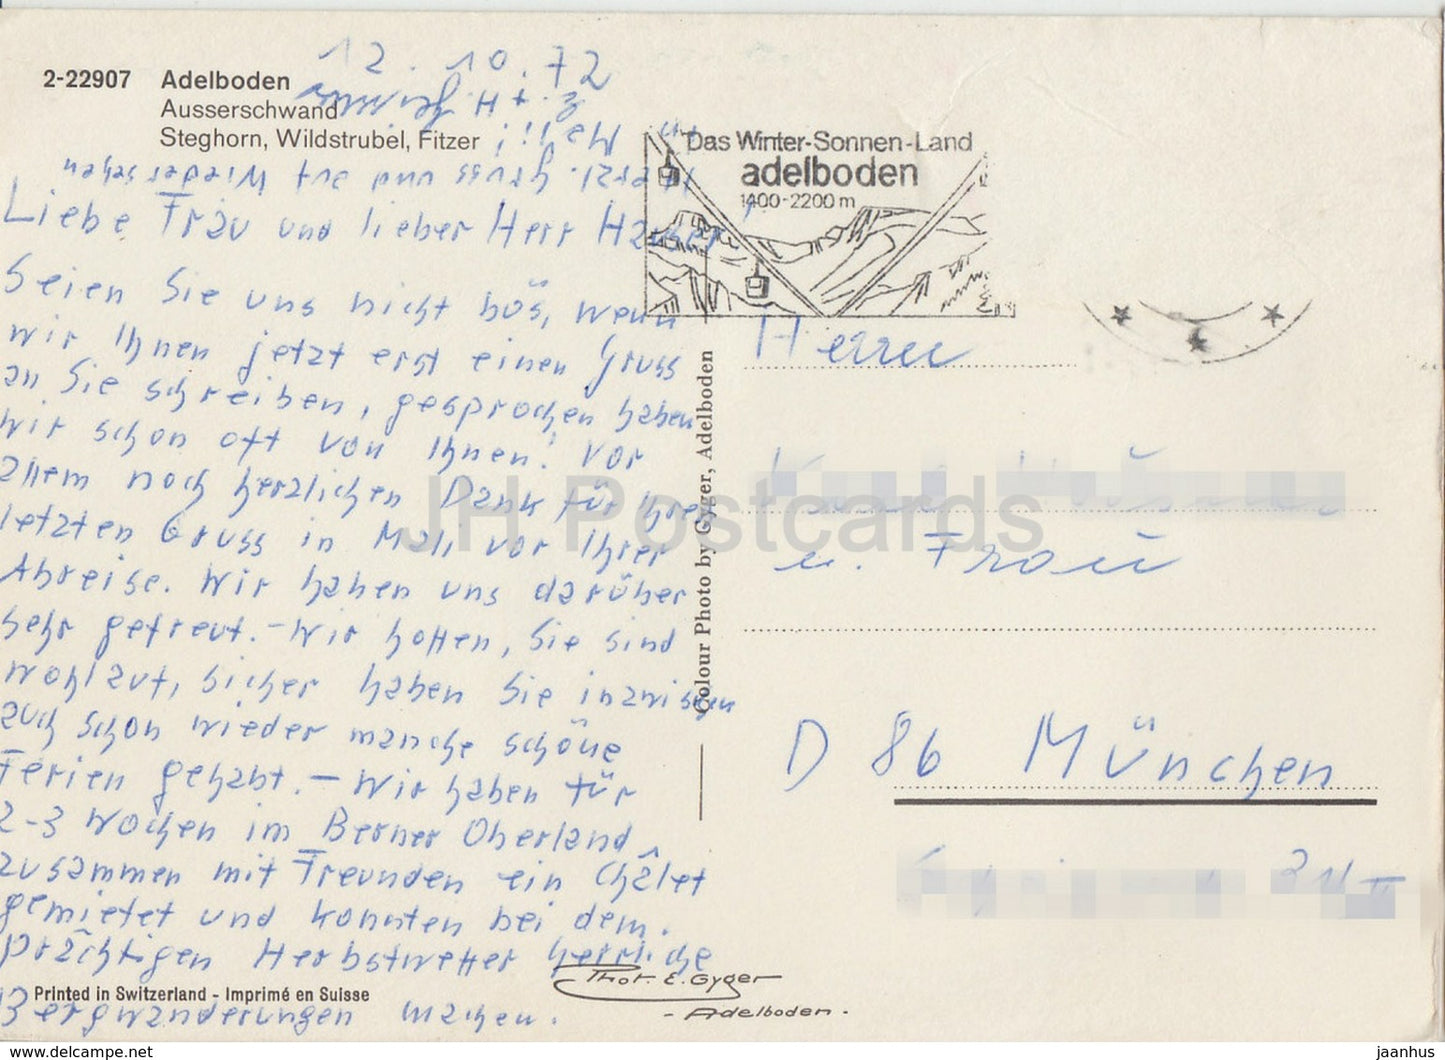 12.10.72
2-22907 Adelboden
Ausserschwand
Steghorn, Wildstrubel, Fitzer
Liebe Frau und lieber Herr
Seien Sie uns nicht bös, wenn
wir Ihnen jetzt erst einen Gruss
an Sie schreiben, gesprochen haben
wir schon oft von Ihnen! Vor
allem noch herzlichen Dank für Ihren
letzten Gruss in Mali vor Ihrer
Abreise. Wir haben uns darüber
sehr gefreut. – Wir hoffen, Sie sind
wohlauf, sicher haben Sie inzwischen
auch schon wieder manche schöne
Ferien gehabt. – Wir haben für
2-3 Wochen im Berner Oberland
zusammen mit Freunden ein Châlet
gemietet und konnten bei dem
prächtigen Herbstwetter herrliche
Bergwanderungen machen.
Herzl. Gruss und auf Wiedersehen
in Mali!
Printed in Switzerland - Imprimé en Suisse
Phot. E. Gyger
- Adelboden -
Colour Photo by Gyger, Adelboden
Das Winter-Sonnen-Land
adelboden
1400-2200 m
Herrn
u. Frau
D 86 München
JH Postcards
https://www.delcampe.net
jaanhus